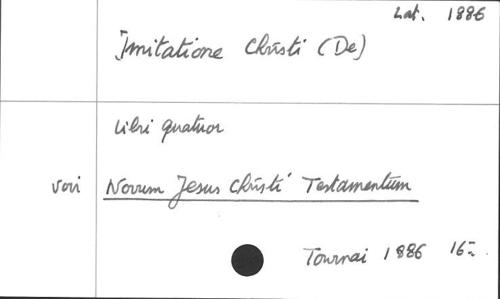 Lat. 1886
Imitatione Christi (De)
Libri quatuor
Voir Novum Jesus Christi Testamentum
Tournai 1886 16-.